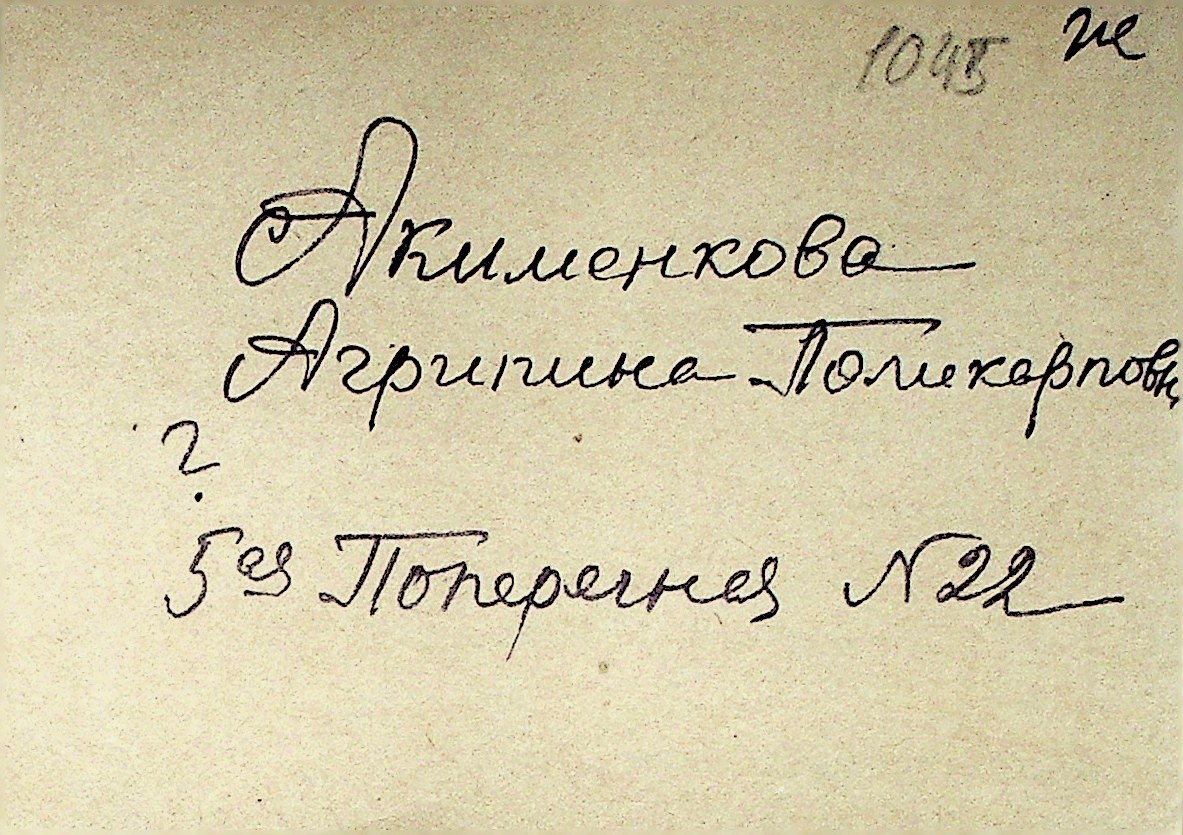 ж
Акименкова
Агрипина Поликарповн
?
5ая Поперечная N22